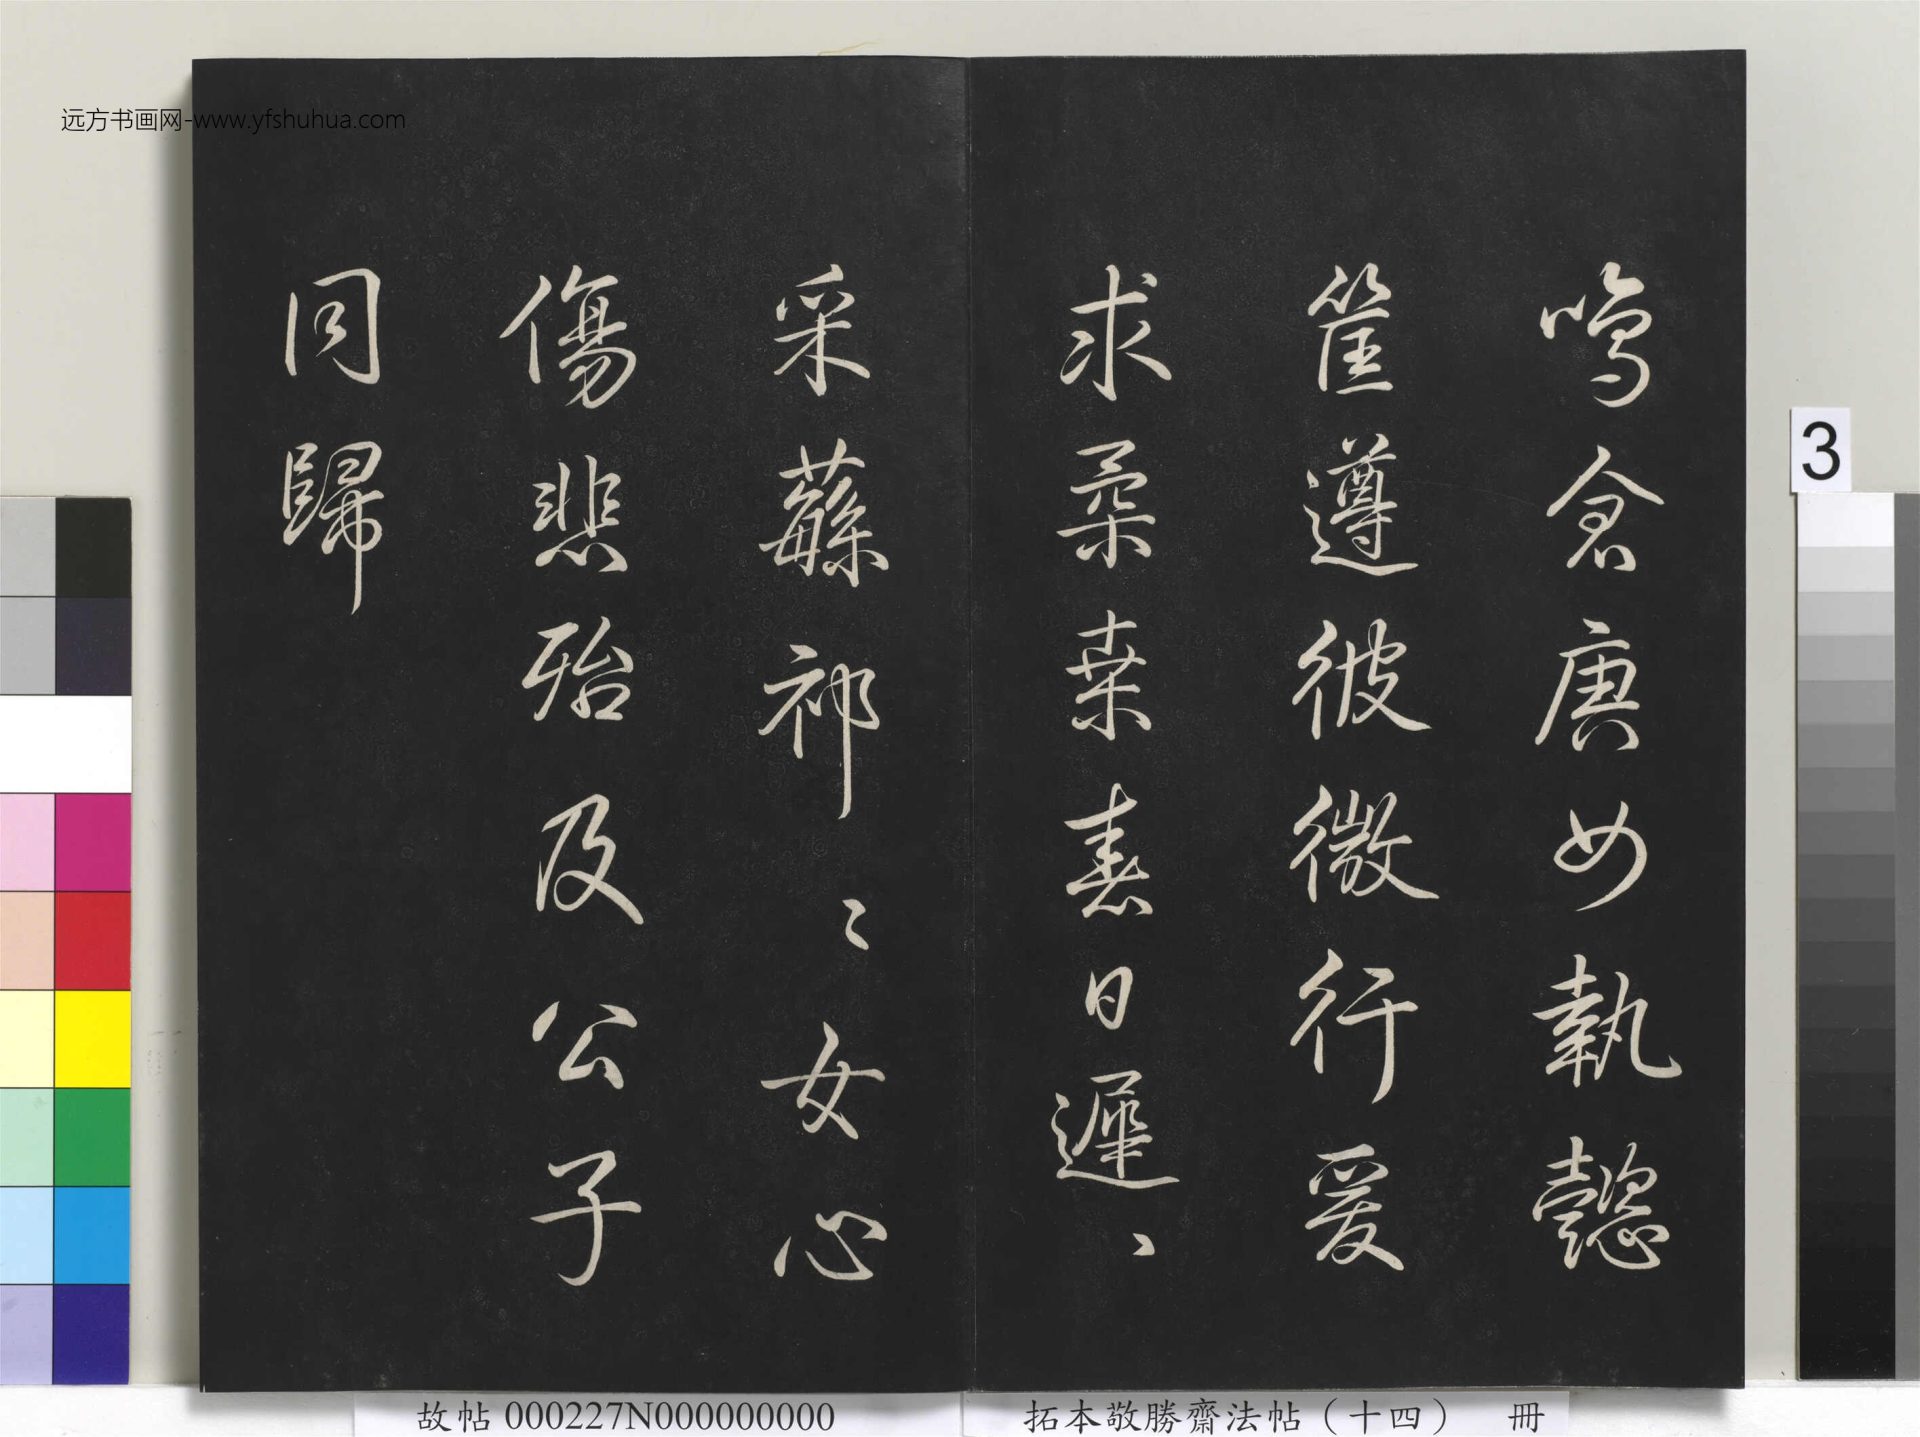 鳴倉庚女執懿
筐遵彼微行爰
求柔桑春日遲〻
采蘩祁〻女心
傷悲殆及公子
同歸
远方书画网-www.yfshuhua.com
3
故帖 000227N000000000
拓本敬勝齋法帖（十四） 冊